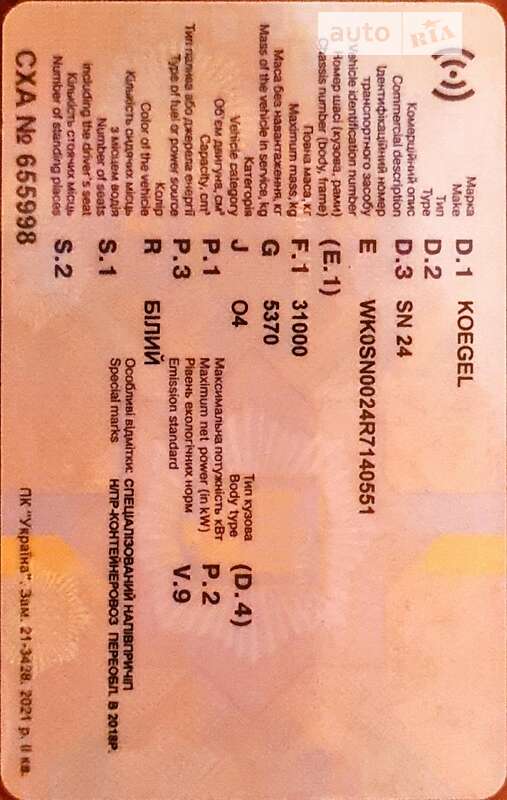 auto RIA
Марка
Make D.1 KOEGEL
Тип
Type D.2
Комерційний опис
Commercial description D.3 SN 24
Ідентифікаційний номер
транспортного засобу
Vehicle identification number E WK0SN0024R7140551
Номер шасі (кузова, рами)
Chassis number (body, frame) (E.1)
Повна маса, кг
Maximum mass, kg F.1 31000
Маса без навантаження, кг
Mass of the vehicle in service, kg G 5370
Категорія
Vehicle category J O4
Тип кузова
Body type (D.4)
Об'єм двигуна, см³
Capacity, cm³ P.1
Максимальна потужність кВт
Maximum net power (in kW) P.2
Тип палива або джерела енергії
Type of fuel or power source P.3
Рівень екологічних норм
Emission standard V.9
Колір
Color of the vehicle R БІЛИЙ
Кількість сидячих місць
з місцем водія
Number of seats
including the driver's seat S.1
Особливі відмітки: СПЕЦІАЛІЗОВАНИЙ НАПІВПРИЧІП
Special marks Н/ПР-КОНТЕЙНЕРОВОЗ ПЕРЕОБЛ. В 2018Р.
Кількість стоячих місць
Number of standing places S.2
СХА № 655998
ПК "Україна". Зам. 21-3428. 2021 р. II кв.